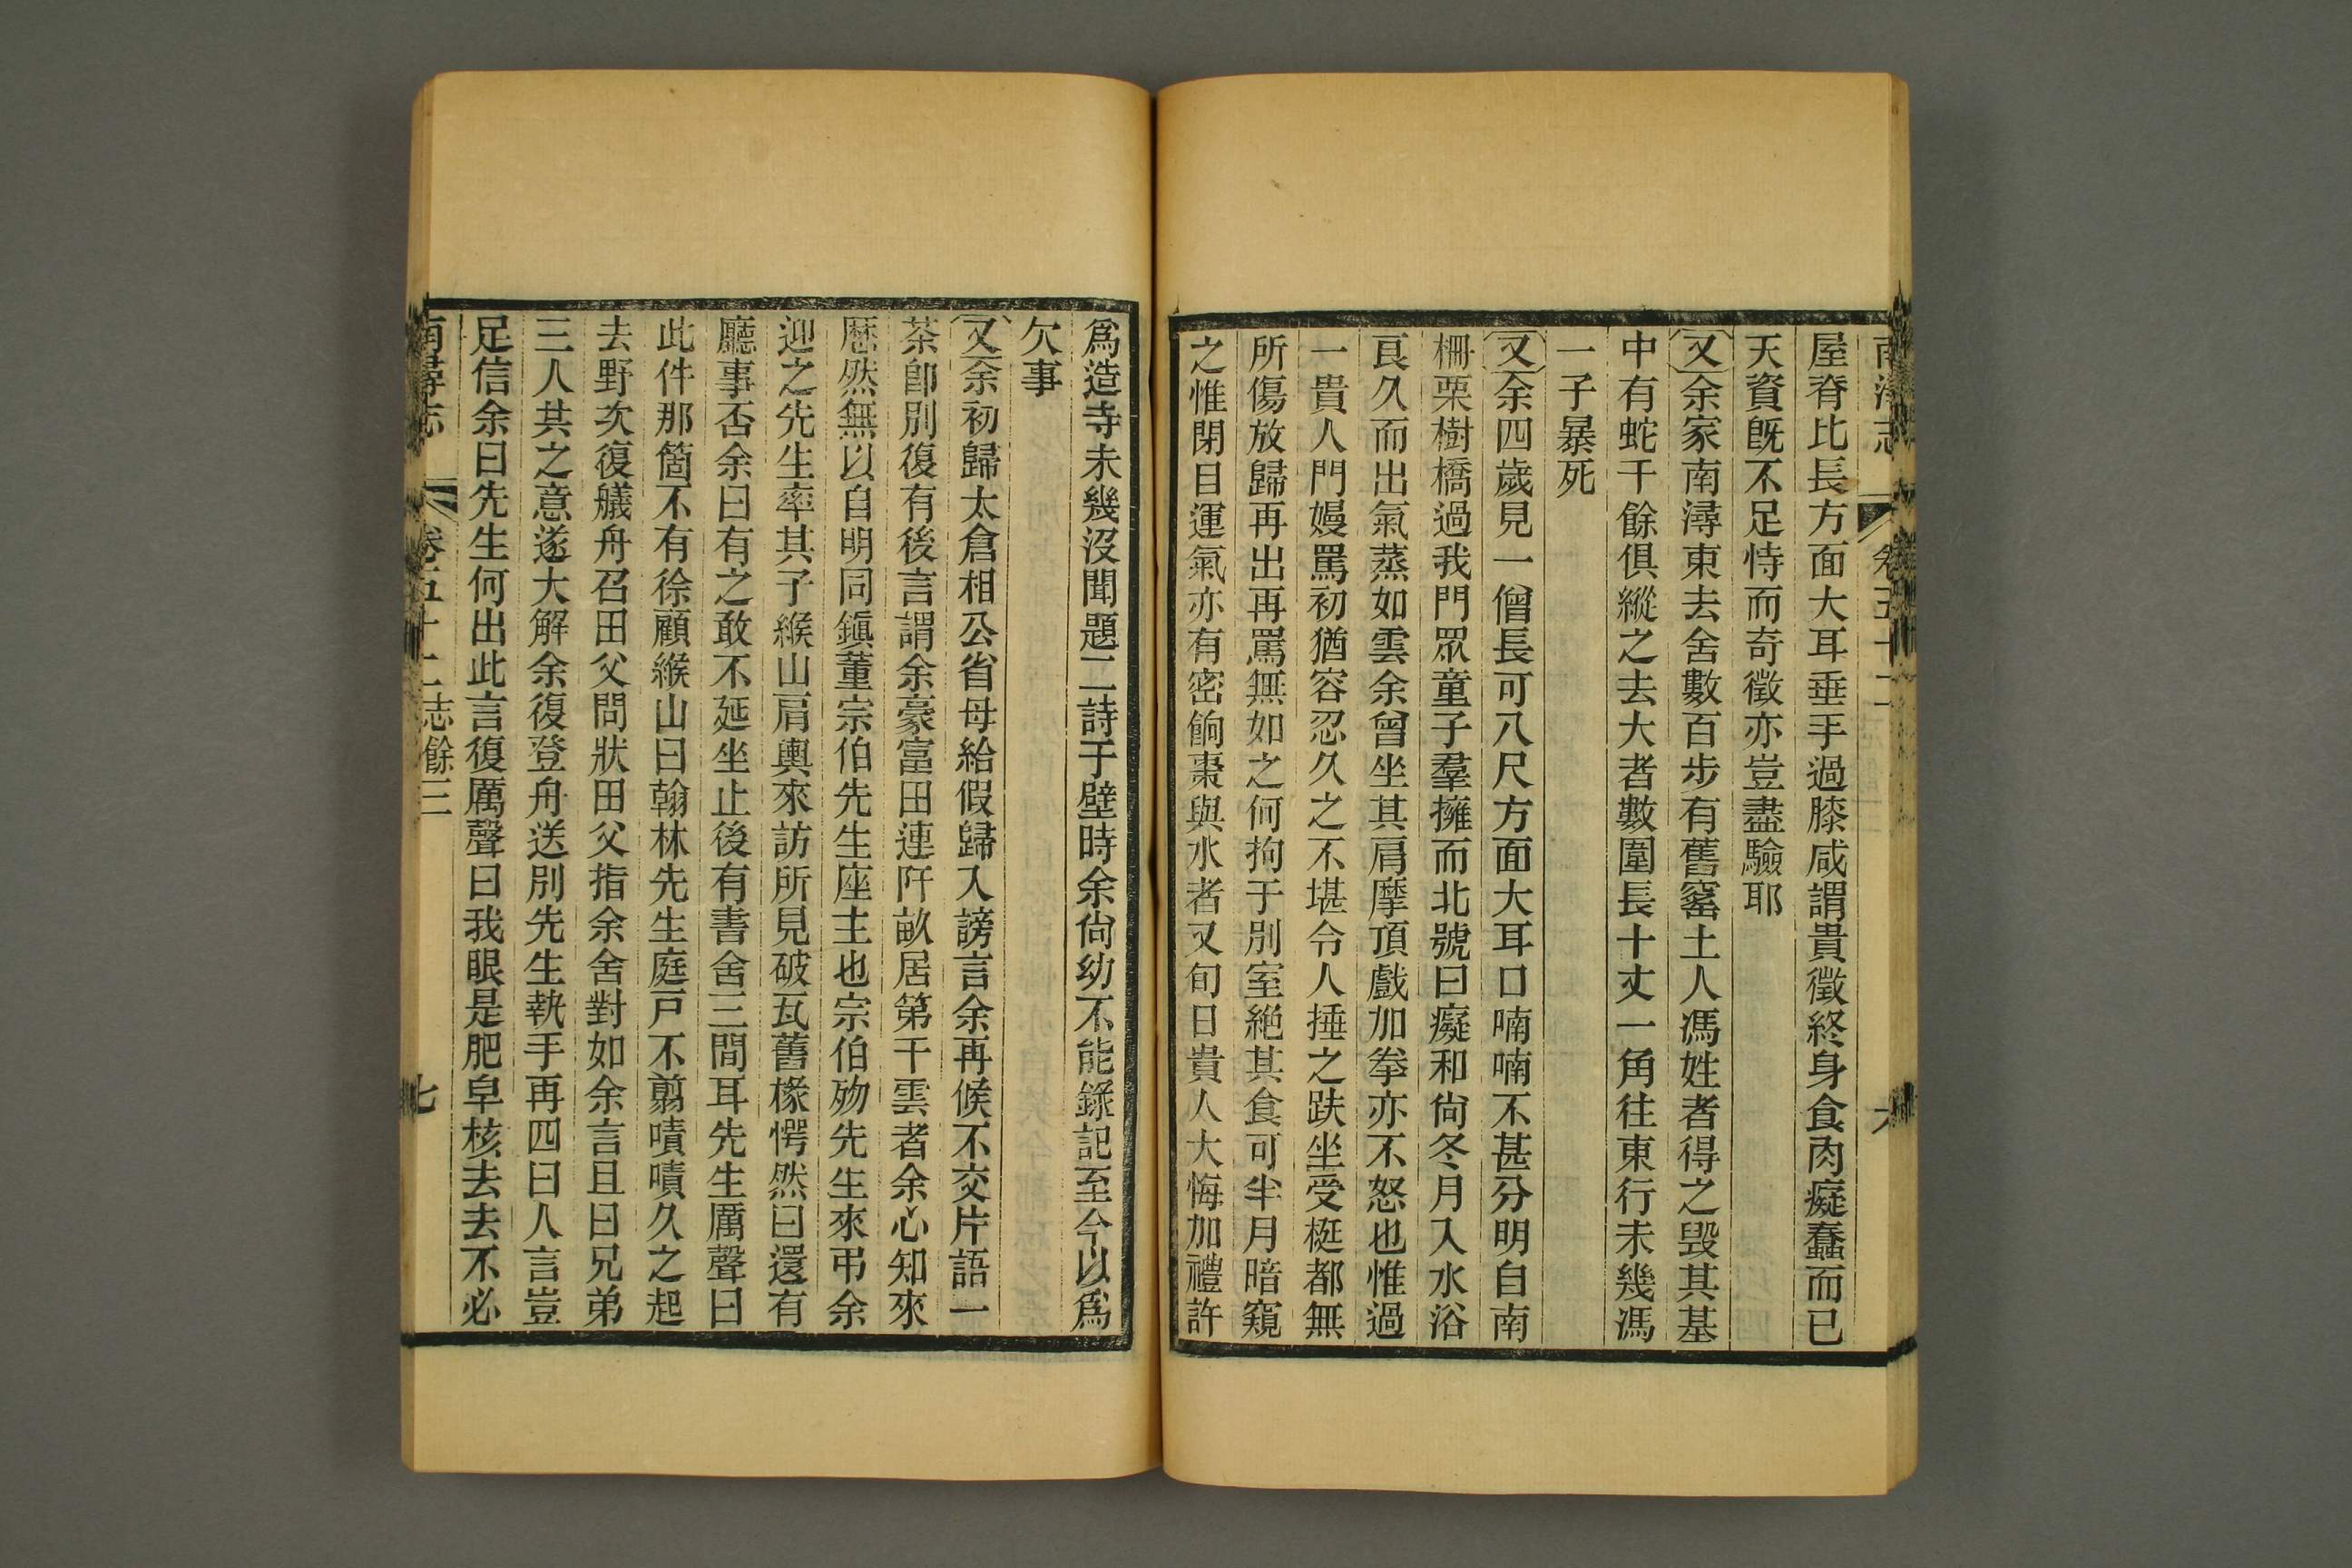 南潯志 卷五十二 六
屋脊比長方面大耳垂手過膝咸謂貴徵終身食肉癡蠢而已
天資旣不足恃而奇徵亦豈盡驗耶
又余家南潯東去舍數百步有舊窰土人馮姓者得之毀其基
中有蛇千餘俱縱之去大者數圍長十丈一角往東行未幾馮
一子暴死
又余四歲見一僧長可八尺方面大耳口喃喃不甚分明自南
柵栗樹橋過我門眾童子羣擁而北號曰癡和尙冬月入水浴
良久而出氣蒸如雲余曾坐其肩摩頂戲加拳亦不怒也惟過
一貴人門嫚罵初猶容忍久之不堪令人捶之趺坐受梃都無
所傷放歸再出再罵無如之何拘于別室絶其食可半月暗窺
之惟閉目運氣亦有密餉棗與水者又旬日貴人大悔加禮許
爲造寺未幾沒聞題二詩于壁時余尙幼不能錄記至今以爲
欠事
又余初歸太倉相公省母給假歸入謗言余再候不交片語一
茶卽別復有後言謂余豪富田連阡畝居第干雲者余心知來
歷然無以自明同鎭董宗伯先生座主也宗伯歿先生來弔余
迎之先生率其子緱山肩輿來訪所見破瓦舊椽愕然曰還有
廳事否余曰有之敢不延坐止後有書舍三間耳先生厲聲曰
此件那箇不有徐顧緱山曰翰林先生庭戸不翦嘖嘖久之起
去野次復艤舟召田父問狀田父指余舍對如余言且曰兄弟
三人共之意遂大解余復登舟送別先生執手再四曰人言豈
足信余曰先生何出此言復厲聲曰我眼是肥皁核去去不必
南潯志 卷五十二 志餘三 七